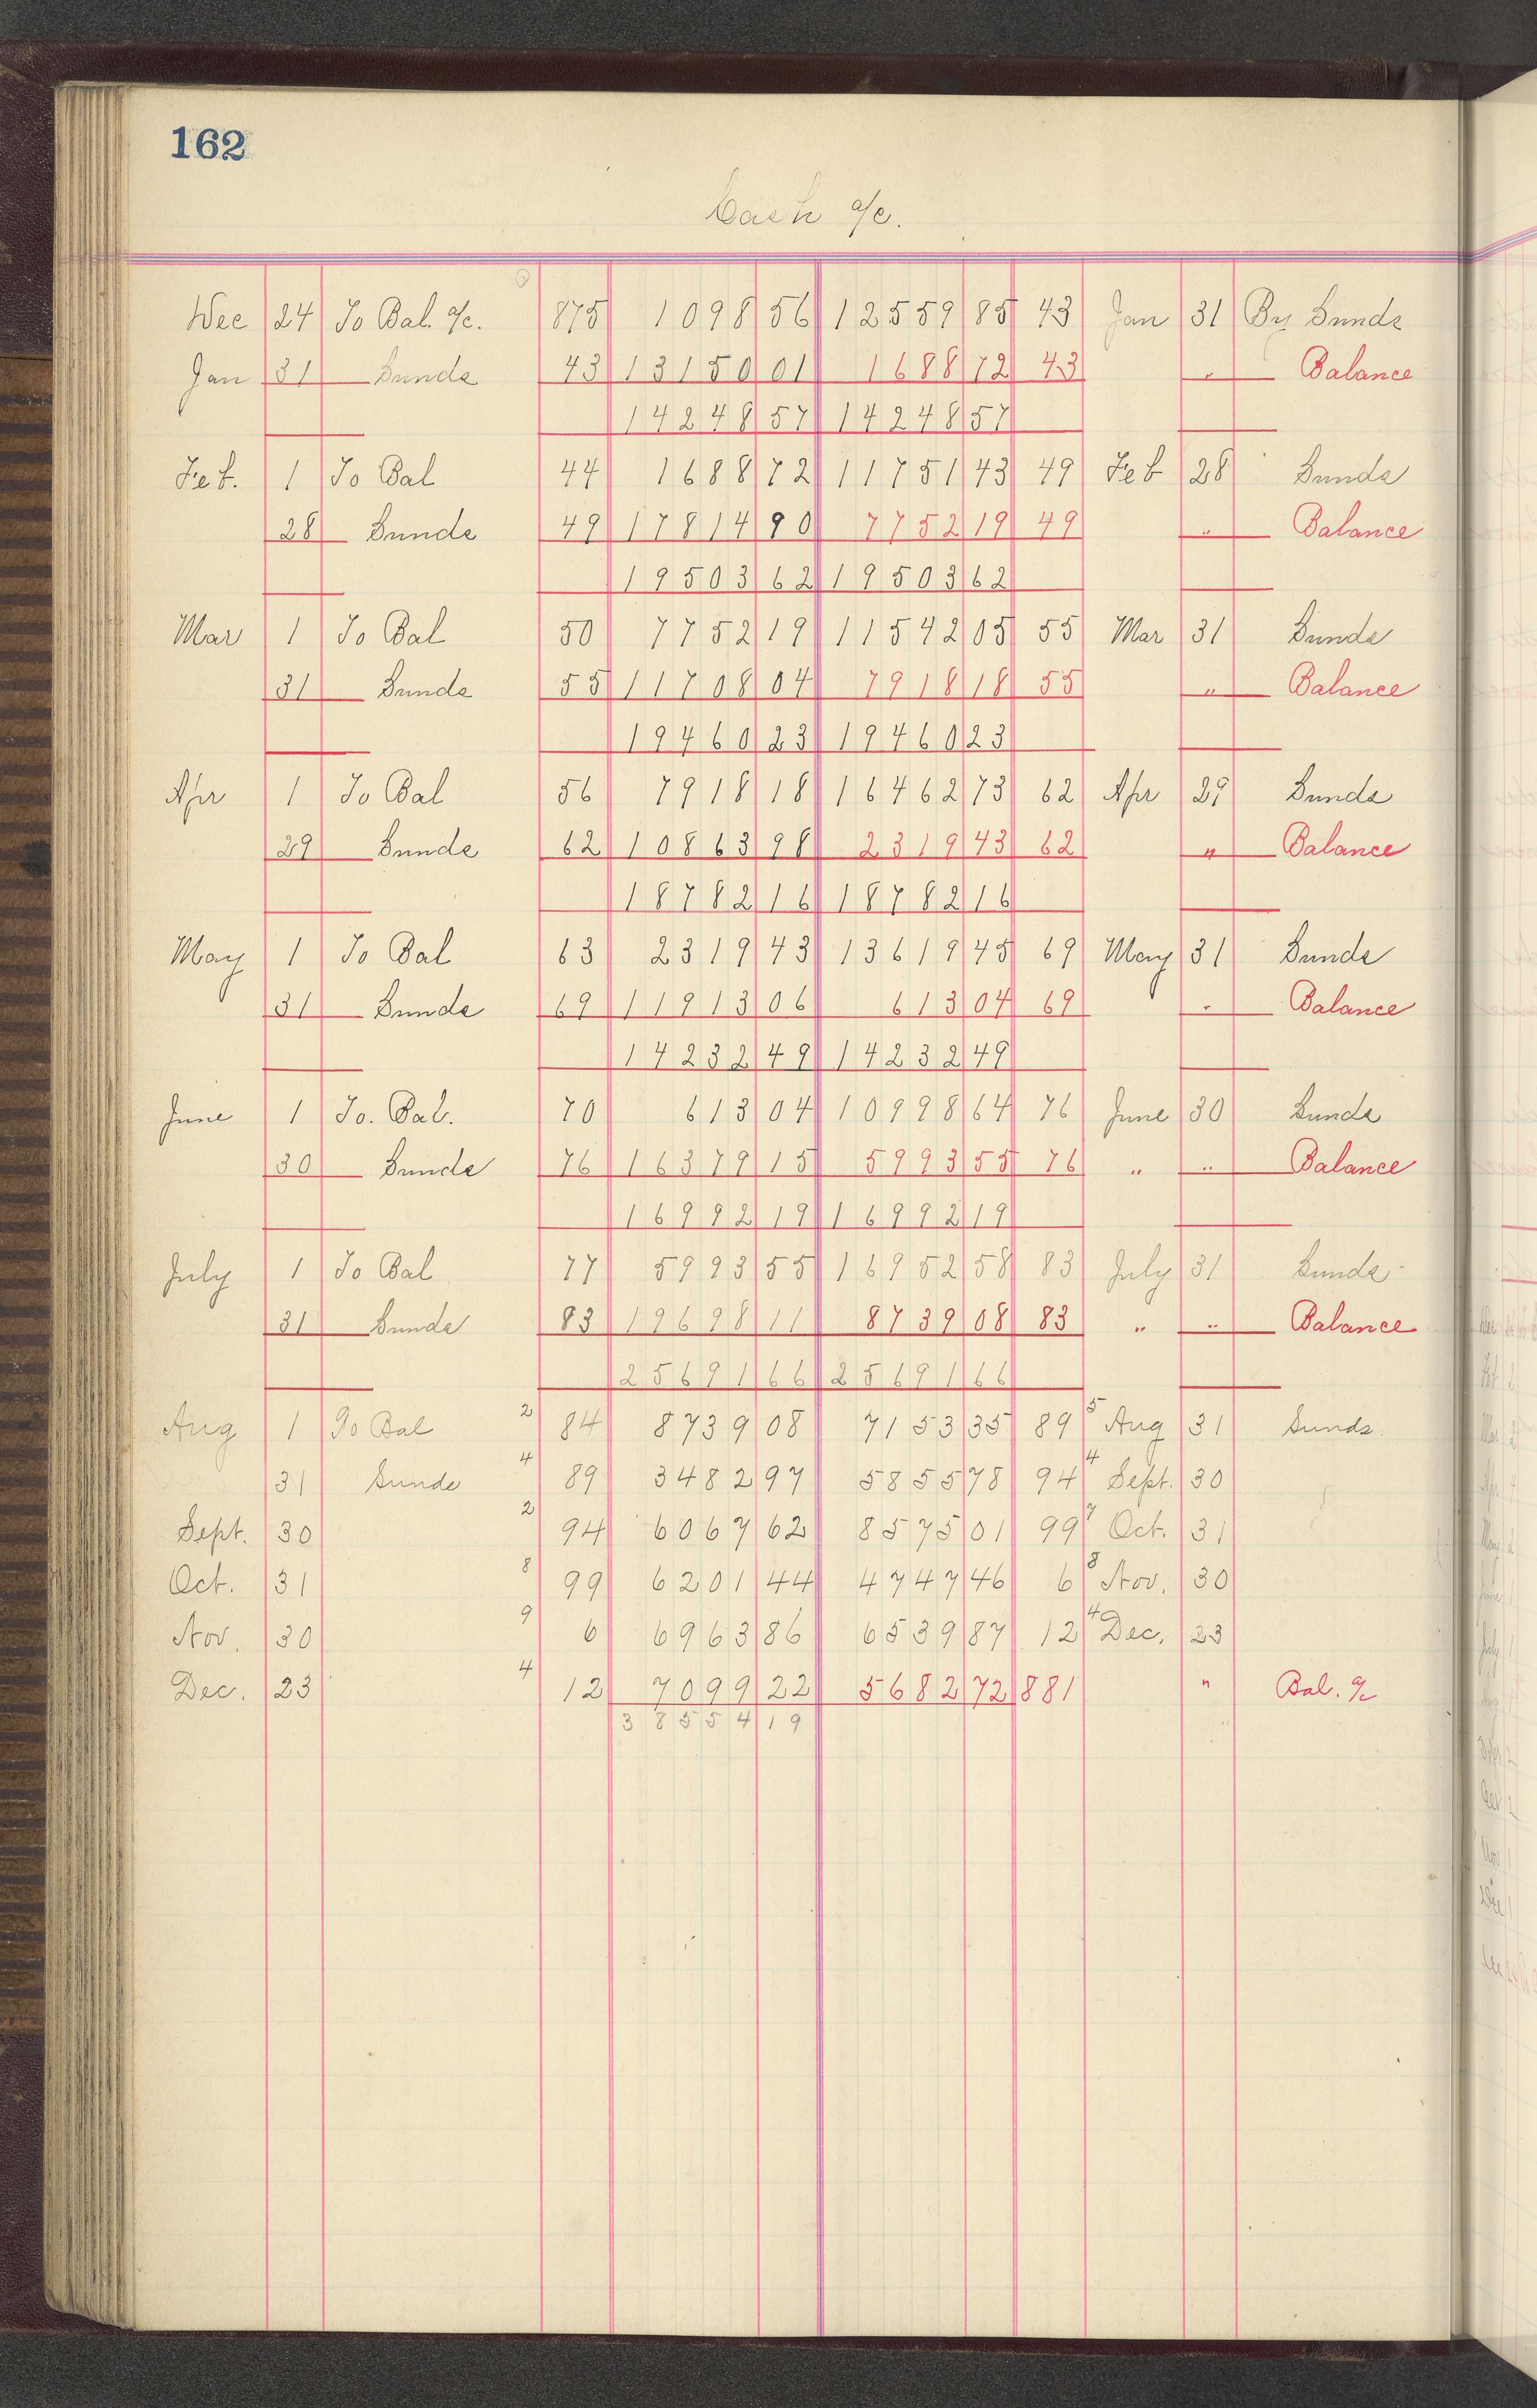 162
Cash a/c.
Dec 24 To Bal. a/c. 875 1098 56 12559 85 43 Jan 31 By Sunds
Jan 31 Sunds 43 13150 01 1688 72 43 " Balance
14248 57 14248 57
Feb. 1 To Bal 44 1688 72 11751 43 49 Feb 28 Sunds
28 Sunds 49 17814 90 7752 19 49 " Balance
19503 62 19503 62
Mar 1 To Bal 50 7752 19 11542 05 55 Mar 31 Sunds
31 Sunds 55 11708 04 7918 18 55 " Balance
19460 23 19460 23
Apr 1 To Bal 56 7918 18 16462 73 62 Apr 29 Sunds
29 Sunds 62 10863 98 2319 43 62 " Balance
18782 16 18782 16
May 1 To Bal 63 2319 43 13619 45 69 May 31 Sunds
31 Sunds 69 11913 06 613 04 69 " Balance
14232 49 14232 49
June 1 To. Bal. 70 613 04 10998 64 76 June 30 Sunds
30 Sunds 76 16379 15 5993 55 76 " " Balance
16992 19 16992 19
July 1 To Bal 77 5993 55 16952 58 83 July 31 Sunds
31 Sunds 83 19698 11 8739 08 83 " " Balance
25691 66 25691 66
Aug 1 To Bal 2 84 8739 08 7153 35 89 5 Aug 31 Sunds
31 Sunds 4 89 3482 97 5855 78 94 4 Sept. 30
Sept. 30 2 94 6067 62 8575 01 99 7 Oct. 31
Oct. 31 8 99 6201 44 4747 46 6 8 Nov. 30
Nov. 30 9 6 6963 86 6539 87 12 4 Dec. 23
Dec. 23 4 12 7099 22 5682 72 881 " Bal. a/c
38554 19